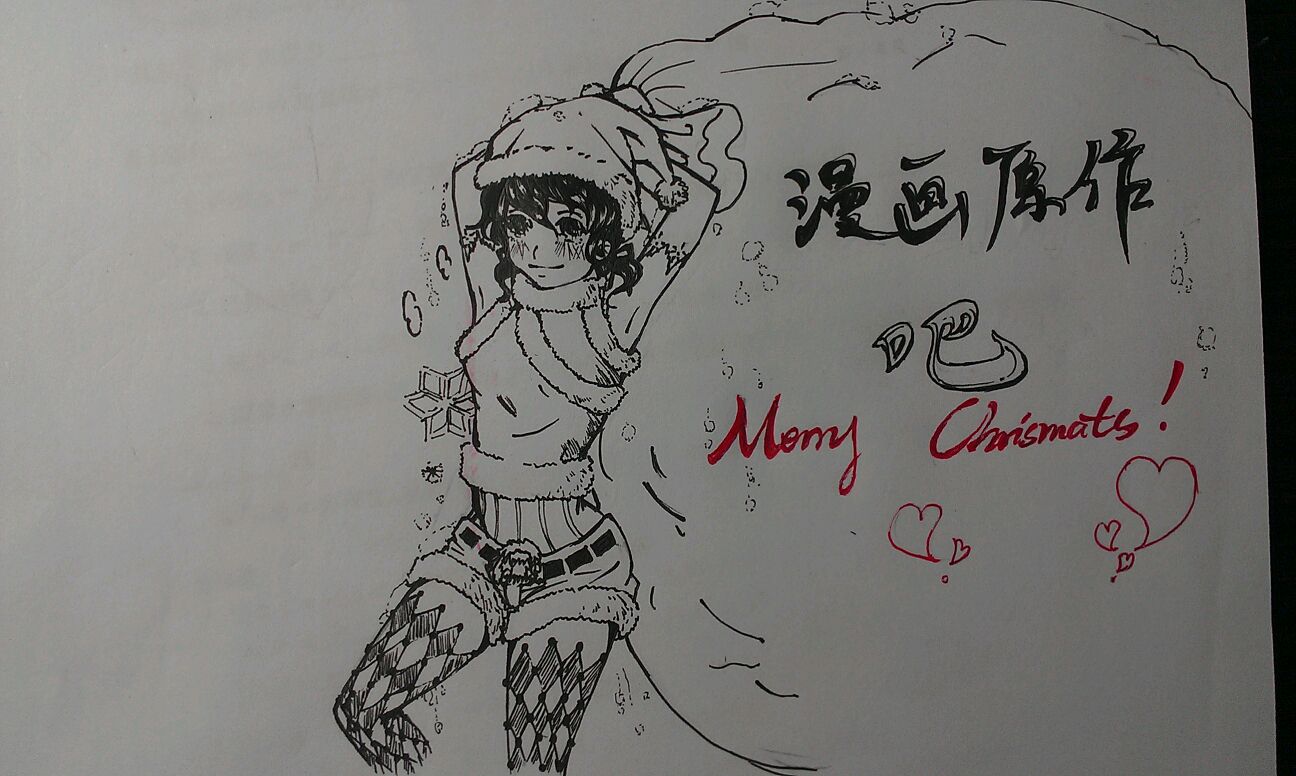 漫画原作
吧
Merry Chrismats!